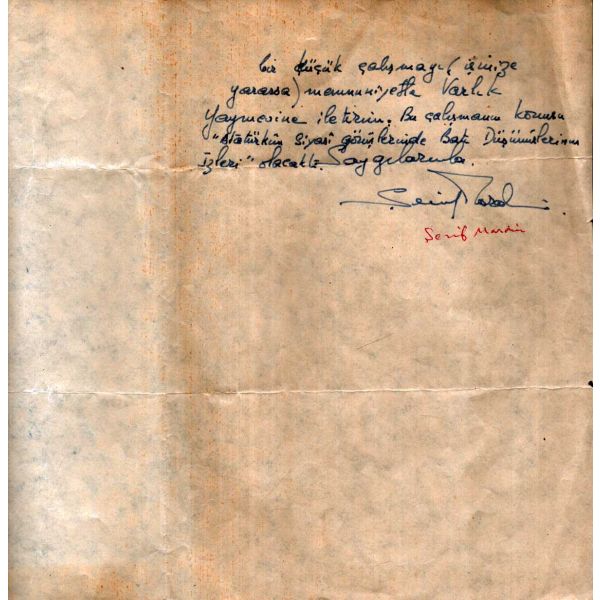 bir küçük çalışmayı (işinize
yararsa) memnuniyetle Varlık
Yayınevine iletirim. Bu çalışmanın konusu
"Atatürkün Siyasî görüşlerinde Batı Düşünürlerinin
İzleri" olacaktı. Saygılarımla.
Şerif Mardin
Şerif Mardin